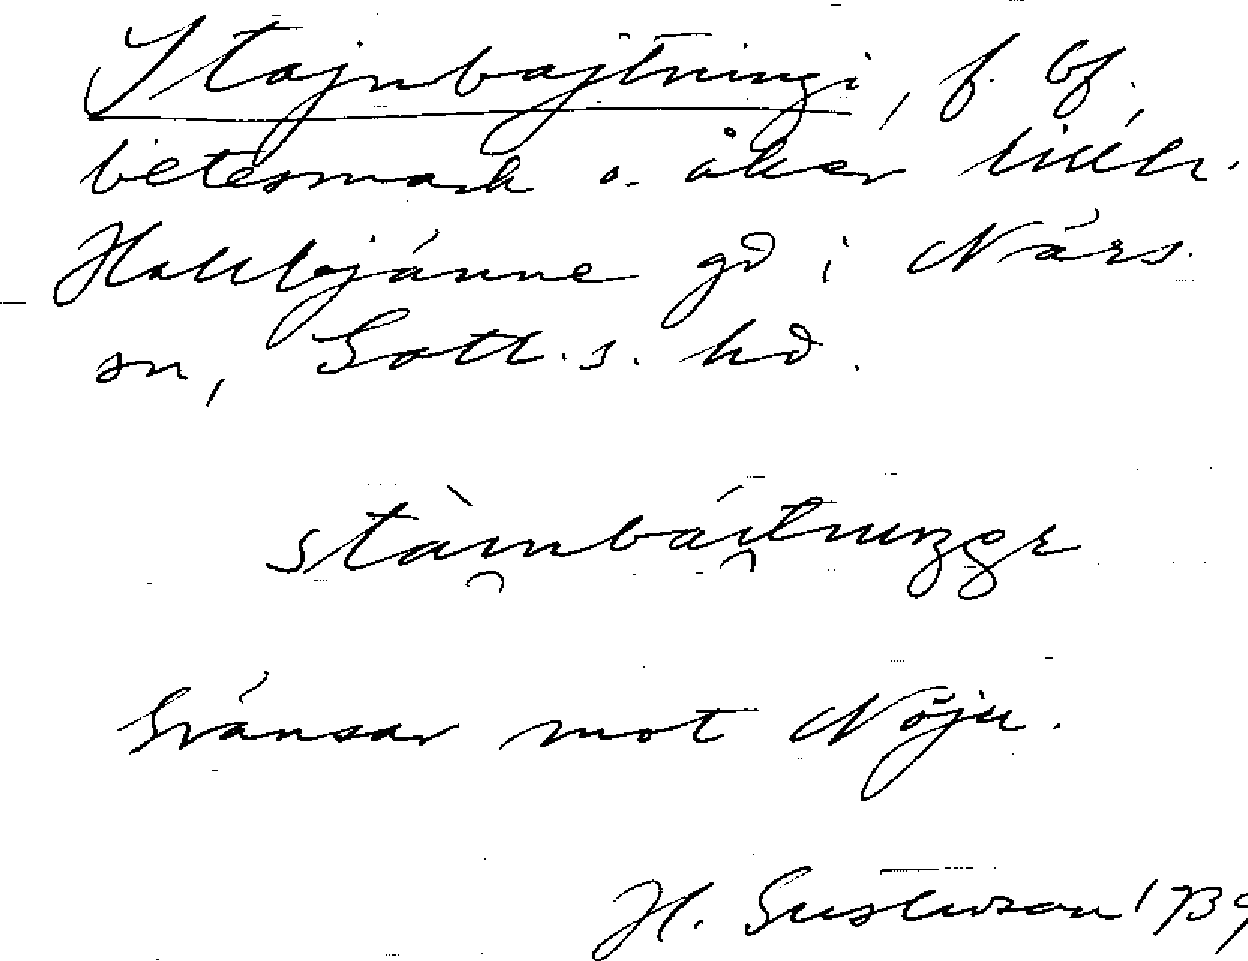 Stajnbajtningi, f. bf.,
betesmark o. åker tillh.
Hallbjänne gd i Närs
sn, Gotl. s. hd.
stàinbáitningge
Gränsar mot Nöju.
H. Gustavson 1939